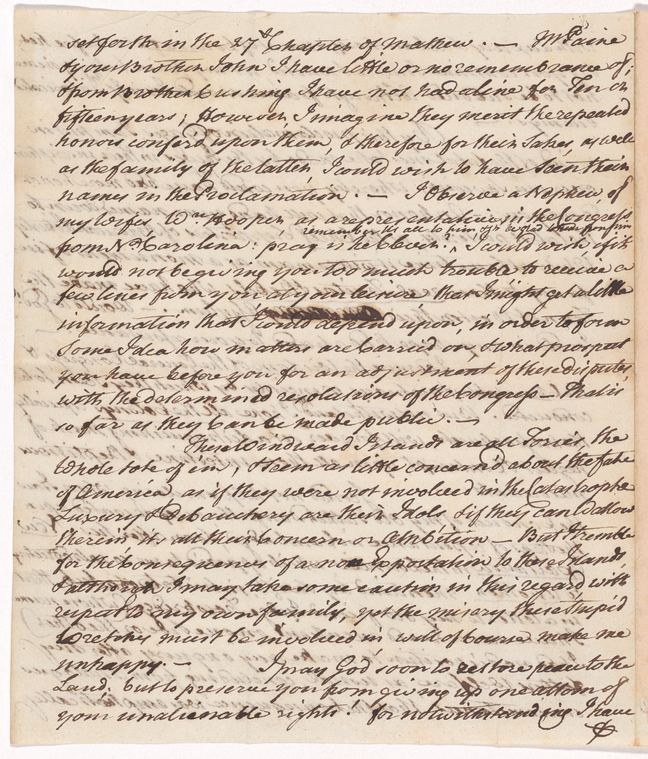 set forth in the 27th Chapter of Mathew. — Mr Paine
& your Brother John I have little or no remembrance of;
& from Brother Cushing I have not had a line for Ten or
fifteen years; However I imagine they merit the repeated
honors confer'd upon them, & therefore for their Sakes, as well
as the family of the latter, I could wish to have Seen their
names in the Proclamation. — I Observe a Nephew, of
my Wifes Wm Hooper, as a representative, in the Congress
remember Us all to him & be glad to hear from him
from No Carolina: pray is he Clever. ^ I could wish if it
would not be giving you too much trouble to receive a
few lines from you at your leisure, that I might get a little
information that I could depend upon, in order to form
Some Idea how matters are Carried on, & what prospect
you have before you for an adjustment of these disputes
with the determined resolutions of the Congress — that is
so far as they Can be made public. —
These Windward Islands are all Tories, the
Whole tote of em, & seem as little concern'd about the fate
of America, as if they were not involved in the Catastrophe
Luxury & Debauchery are their Idols & if they can Wallow
therein its all their Concern or Ambition — But I tremble
for the Consequences of a non Exportation to these Islands,
& although I may take some caution in this regard with
respect to my own family, yet the misery these Stupid
Wretches must be involved in will of Course make me
unhappy. — I pray God soon to restore peace to the
Land; but to preserve you from giving up one attom of
your unalienable rights! for notwithstanding I have